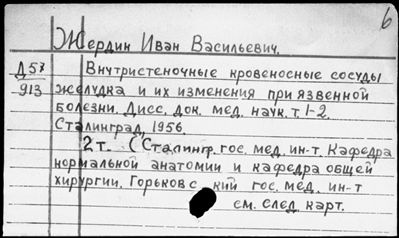 6
Жердин Иван Васильевич.
Д57 Внутристеночные кровеносные сосуды
913 желудка и их изменения при язвенной
болезни. Дисс. док. мед. наук. т. 1-2.
Сталинград, 1956.
2 т. (Сталингр. гос. мед. ин-т. Кафедра
нормальной анатомии и кафедра общей
хирургии. Горьковс кий гос. мед. ин-т
см. след. карт.